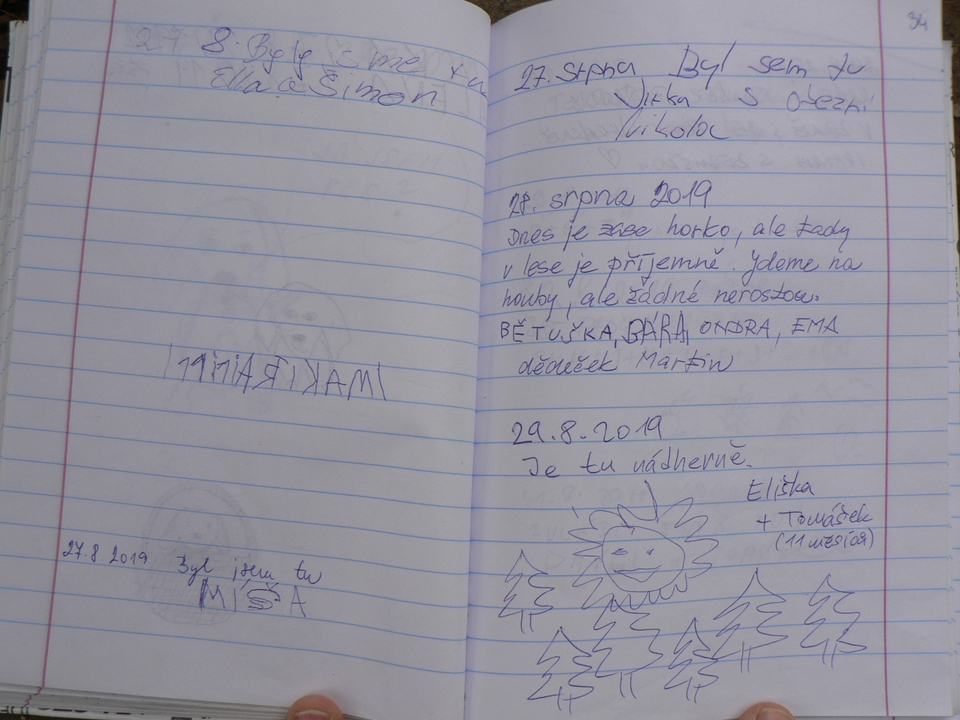 27 8. Byly sme tu
Ella a Šimon
27. 8 2019 Byl jsem tu
MIŠA
34
27. srpna Byl sem tu
Jirka s
Nikolou
28. srpna 2019
Dnes je zase horko, ale tady
v lese je příjemně. Jdeme na
houby, ale žádné nerostou.
BĚTUŠKA, BÁRA, ONDRA, EMA
dědeček Martin
29.8.2019
Je tu nádherně.
Eliška
+ Tomášek
(11 měsíců)